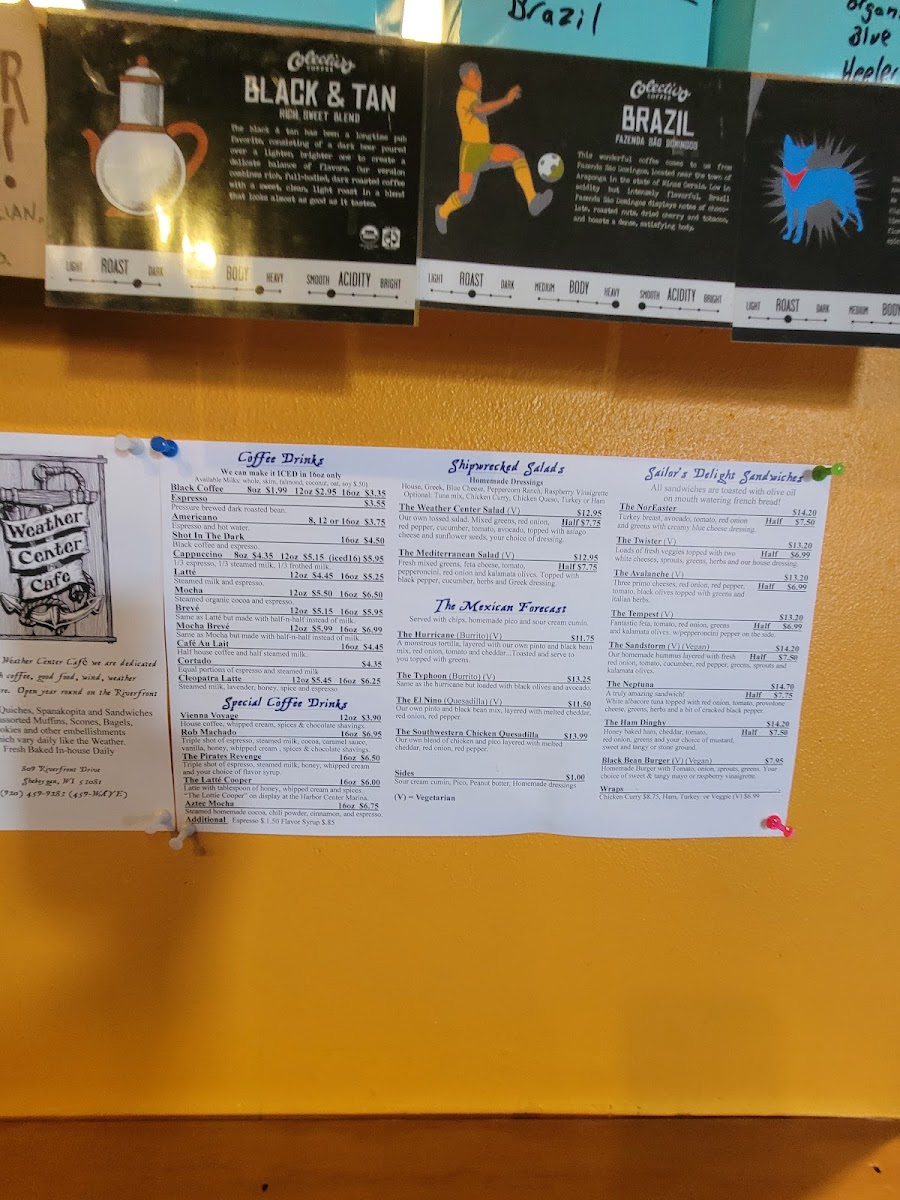 Brazil
organ
Blue
Heeler
R
!
LIAN,
Colectivo
COFFEE
BLACK & TAN
RICH, SWEET BLEND
The black & tan has been a longtime pub
favorite, consisting of a dark beer poured
over a lighter, brighter one to create a
delicate balance of flavors. Our version
combines rich, full-bodied, dark roasted coffee
with a sweet, clean, light roast in a blend
that looks almost as good as it tastes.
LIGHT ROAST DARK
BODY HEAVY
SMOOTH ACIDITY BRIGHT
Colectivo
COFFEE
BRAZIL
FAZENDA SÃO DOMINGOS
This wonderful coffee comes to us from
Fazenda São Domingos, located near the town of
Araponga in the state of Minas Gerais. Low in
acidity but intensely flavorful, Brazil
Fazenda São Domingos displays notes of choco-
late, roasted nuts, dried cherry and tobacco,
and boasts a dense, satisfying body.
LIGHT ROAST DARK
MEDIUM BODY HEAVY
SMOOTH ACIDITY BRIGHT
LIGHT ROAST DARK
MEDIUM BODY
Weather
Center
Cafe
Weather Center Café we are dedicated
coffee, good food, wind, weather
re. Open year round on the Riverfront
Quiches, Spanakopita and Sandwiches
ssorted Muffins, Scones, Bagels,
okies and other embellishments
hich vary daily like the Weather.
Fresh Baked In-house Daily
809 Riverfront Drive
Sheboygan, WI 53081
(920) 459-9283 (459-WAVE)
Coffee Drinks
We can make it ICED in 16oz only
Available Milks: whole, skim, (almond, coconut, oat, soy $.50)
Black Coffee 8oz $1.99 12oz $2.95 16oz $3.35
Espresso $3.55
Pressure brewed dark roasted bean.
Americano 8, 12 or 16oz $3.75
Espresso and hot water.
Shot In The Dark 16oz $4.50
Black coffee and espresso.
Cappuccino 8oz $4.35 12oz $5.15 (iced16) $5.95
1/3 espresso, 1/3 steamed milk, 1/3 frothed milk.
Latté 12oz $4.45 16oz $5.25
Steamed milk and espresso.
Mocha 12oz $5.50 16oz $6.50
Steamed organic cocoa and espresso.
Brevé 12oz $5.15 16oz $5.95
Same as Latté but made with half-n-half instead of milk.
Mocha Brevé 12oz $5.99 16oz $6.99
Same as Mocha but made with half-n-half instead of milk.
Café Au Lait 16oz $4.45
Half house coffee and half steamed milk.
Cortado $4.35
Equal portions of espresso and steamed milk
Cleopatra Latte 12oz $5.45 16oz $6.25
Steamed milk, lavender, honey, spice and espresso
Special Coffee Drinks
Vienna Voyage 12oz $3.90
House coffee, whipped cream, spices & chocolate shavings.
Rob Machado 16oz $6.95
Triple shot of espresso, steamed milk, cocoa, caramel sauce,
vanilla, honey, whipped cream , spices & chocolate shavings.
The Pirates Revenge 16oz $6.50
Triple shot of espresso, steamed milk, honey, whipped cream
and your choice of flavor syrup.
The Latté Cooper 16oz $6.00
Latte with tablespoon of honey, whipped cream and spices.
"The Lottie Cooper" on display at the Harbor Center Marina.
Aztec Mocha 16oz $6.75
Steamed homemade cocoa, chili powder, cinnamon, and espresso.
Additional Espresso $ 1.50 Flavor Syrup $.85
Shipwrecked Salads
Homemade Dressings
House, Greek, Blue Cheese, Peppercorn Ranch, Raspberry Vinaigrette
Optional: Tuna mix, Chicken Curry, Chicken Queso, Turkey or Ham
The Weather Center Salad (V) $12.95
Our own tossed salad. Mixed greens, red onion, Half $7.75
red pepper, cucumber, tomato, avocado, topped with asiago
cheese and sunflower seeds, your choice of dressing.
The Mediterranean Salad (V) $12.95
Fresh mixed greens, feta cheese, tomato, Half $7.75
pepperoncini, red onion and kalamata olives. Topped with
black pepper, cucumber, herbs and Greek dressing.
The Mexican Forecast
Served with chips, homemade pico and sour cream cumin.
The Hurricane (Burrito)(V) $11.75
A monstrous tortilla, layered with our own pinto and black bean
mix, red onion, tomato and cheddar...Toasted and serve to
you topped with greens.
The Typhoon (Burrito) (V) $13.25
Same as the hurricane but loaded with black olives and avocado.
The El Nino (Quesadilla) (V) $11.50
Our own pinto and black bean mix, layered with melted cheddar,
red onion, red pepper.
The Southwestern Chicken Quesadilla $13.99
Our own blend of chicken and pico layered with melted
cheddar, red onion, red pepper.
Sides $1.00
Sour cream cumin, Pico, Peanut butter, Homemade dressings
(V) = Vegetarian
Sailor's Delight Sandwiches
All sandwiches are toasted with olive oil
on mouth watering french bread!
The NorEaster $14.20
Turkey breast, avocado, tomato, red onion Half $7.50
and greens with creamy blue cheese dressing.
The Twister (V) $13.20
Loads of fresh veggies topped with two Half $6.99
white cheeses, sprouts, greens, herbs and our house dressing.
The Avalanche (V) $13.20
Three primo cheeses, red onion, red pepper, Half $6.99
tomato, black olives topped with greens and
italian herbs.
The Tempest (V) $13.20
Fantastic feta, tomato, red onion, greens Half $6.99
and kalamata olives. w/pepperoncini pepper on the side.
The Sandstorm (V) (Vegan) $14.20
Our homemade hummus layered with fresh Half $7.50
red onion, tomato, cucumber, red pepper, greens, sprouts and
kalamata olives.
The Neptuna $14.70
A truly amazing sandwich! Half $7.75
White albacore tuna topped with red onion, tomato, provolone
cheese, greens, herbs and a bit of cracked black pepper.
The Ham Dinghy $14.20
Honey baked ham, cheddar, tomato, Half $7.50
red onion, greens and your choice of mustard,
sweet and tangy or stone ground.
Black Bean Burger (V) (Vegan) $7.95
Homemade Burger with Tomato, onion, sprouts, greens. Your
choice of sweet & tangy mayo or raspberry vinaigrette.
Wraps
Chicken Curry $8.75, Ham, Turkey or Veggie (V) $6.99